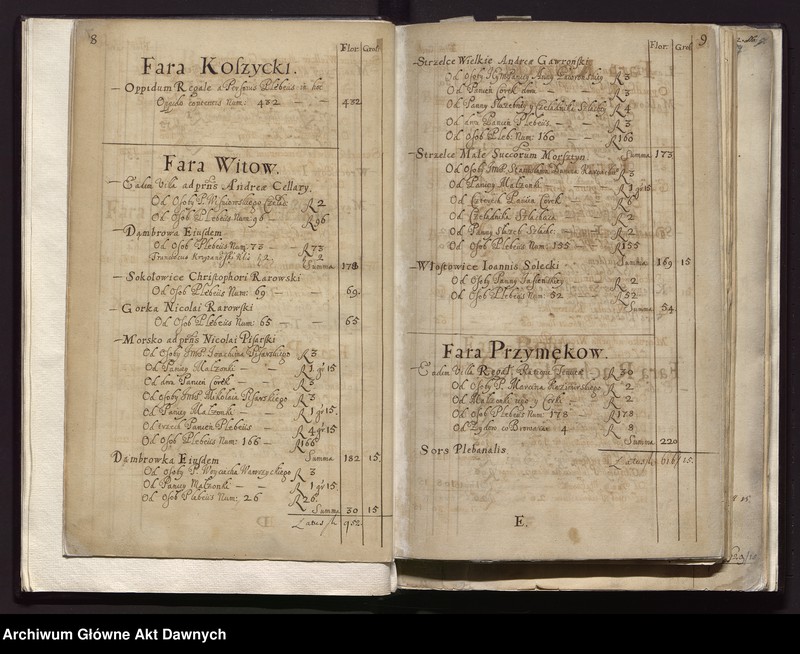 8
Flor. Gros.
Fara Koszycki.
– Oppidum Regale a Personis Plebeiis in hoc
Oppido existentis Num: 432 – – 432
Fara Witow.
– Eadem Villa ad prns Andreæ Cellary.
Od Osoby P. Wiśniowskiego R 2
Od Osob Plebeiis Num: 96 – R 96
– Dąmbrowa Eiusdem
Od Osob Plebeiis Num: 73 – R 73
R 2
Summa 178
– Sokołowice Christophori Rarowski
Od Osob Plebeiis Num: 69 – – 69.
– Gorka Nicolai Rarowski
Od Osob Plebeiis Num: 65 – – 65
– Morsko ad prns Nicolai Pisarski
Od Osoby Jmś Joachima Pisarskiego R 3
Od Paniey Małżonki – – R 1 gr 15
Od dwu Panien Corek – R 3
Od Osoby Jmś Mikołaia Pisarskiego R 3
Od Paniey Małżonki – R 1 gr 15.
Od trzech Panien Plebeiis – R 4 gr 15
Od Osob Plebeiis Num: 165 – R 165
Summa 182 15.
Dąmbrowka Eiusdem
Od Osoby P. Woyciecha R 3
Od Paniey Małżonki – – R 1 gr 15.
Od Osob Plebeiis Num: 26 R 26.
Summa 30 15
Latus fl. 952.
9
Flor. Gros.
– Strzelce Wielkie Andreæ Gawronski
Od Osoby Anny R 3
Od Panien Corek dwu – – R 3
Od Panny Służebny y Czeladnika Szlachty R 4
Od dwu Panien Plebeiis – – R 3
Od Osob Pleb: Num: 160 – – R 160
Summa 173
– Strzelce Małe Succorum Morsztyn.
Od Osoby Jmś Stanisława R 3
Od Paniey Małżonki – – R 1 gr 15
Od Czterech Panien Corek – R 6
Od Czeladnika Szlachcica – R 2
Od Panny Służeb: Szlach: – R 2
Od Osob Plebeiis Num: 155 – R 155
Summa 169 15
– Włostowice Ioannis Solecki
Od Osoby Panny – R 2
Od Osob Plebeiis Num: 52 – – R 52
Summa 54
Fara Przymękow.
– Eadem Villa Regal. R 30
Od Osoby P. Marcina R 2
Od Małżonki iego y Corki – R 2
Od Osob Plebeiis Num: 178 – R 178
Od Żydow co Browarze 4 R 8
Summa 220
Sors Plebanalis
Latus fl. 616/15.
E.
Archiwum Główne Akt Dawnych